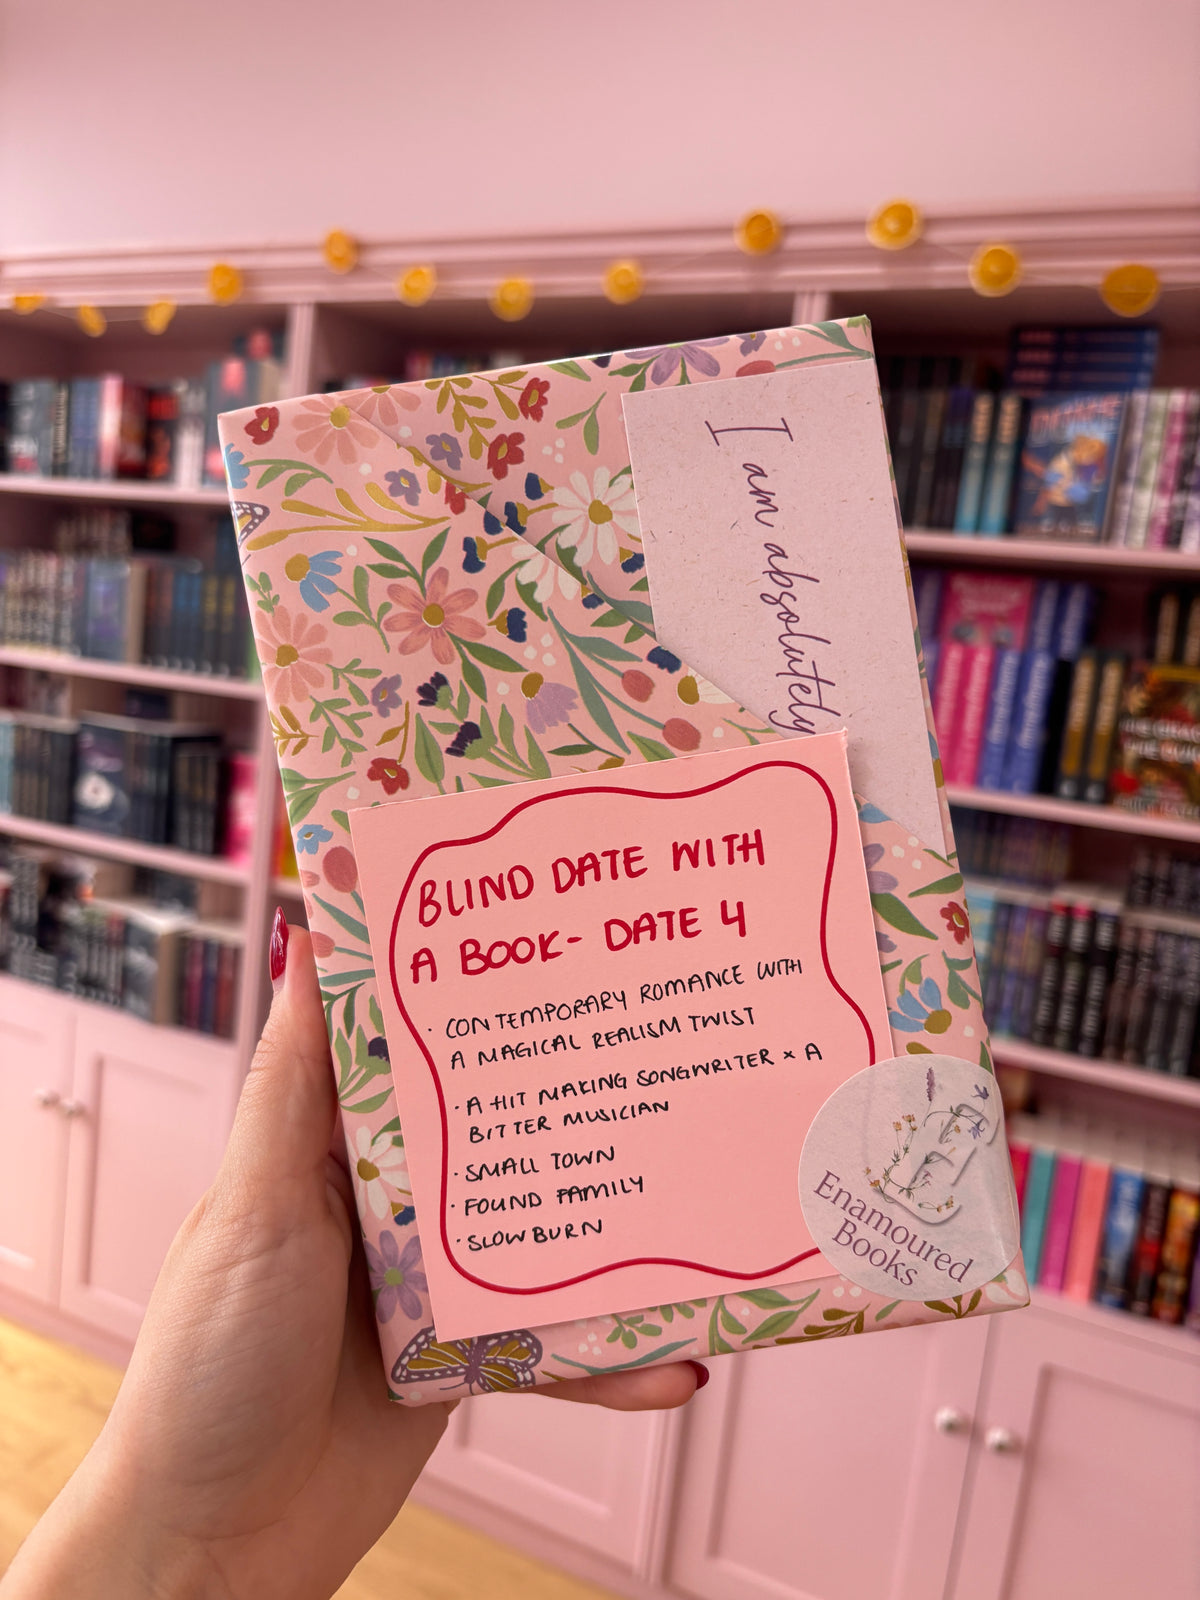 I am absolutely
BLIND DATE WITH
A BOOK- DATE 4
· CONTEMPORARY ROMANCE WITH
A MAGICAL REALISM TWIST
· A HIT MAKING SONGWRITER x A
BITTER MUSICIAN
· SMALL TOWN
· FOUND FAMILY
· SLOW BURN
E
E
Enamoured
Books